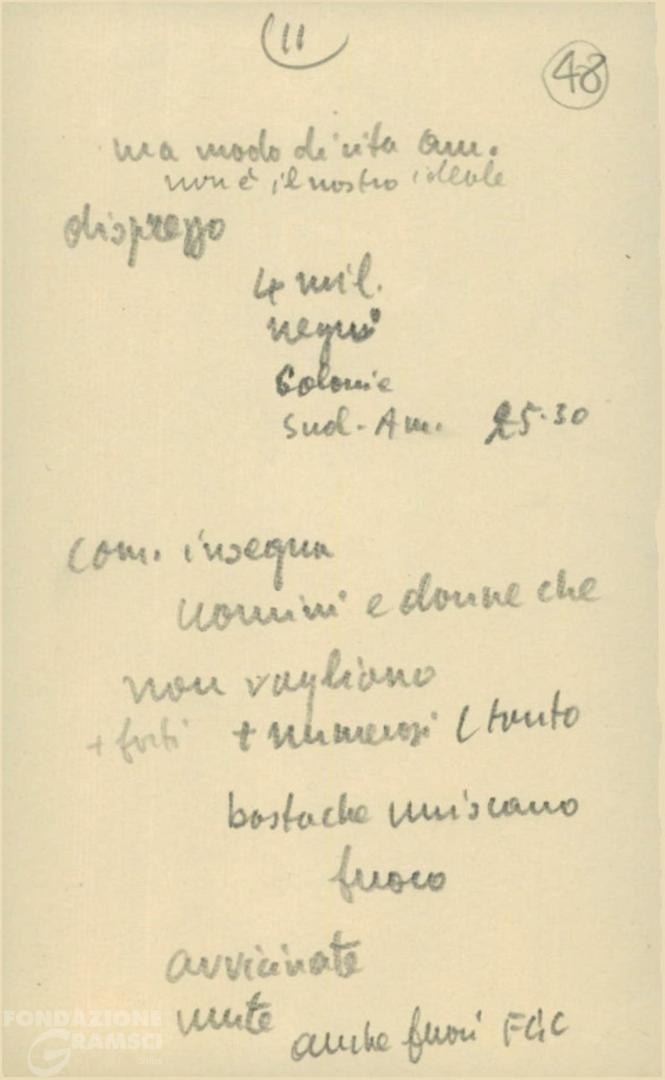 11
48
ma modo di vita am.
non è il nostro ideale
disprezzo
4 mil.
negri
Colonie
Sud-Am. 25.30
com. insegna
uomini e donne che
non vogliono
+ forti + numerosi (tanto
basta che uniscano
fuoco
avvicinate
unite
anche fuori FGC
FONDAZIONE
GRAMSCI